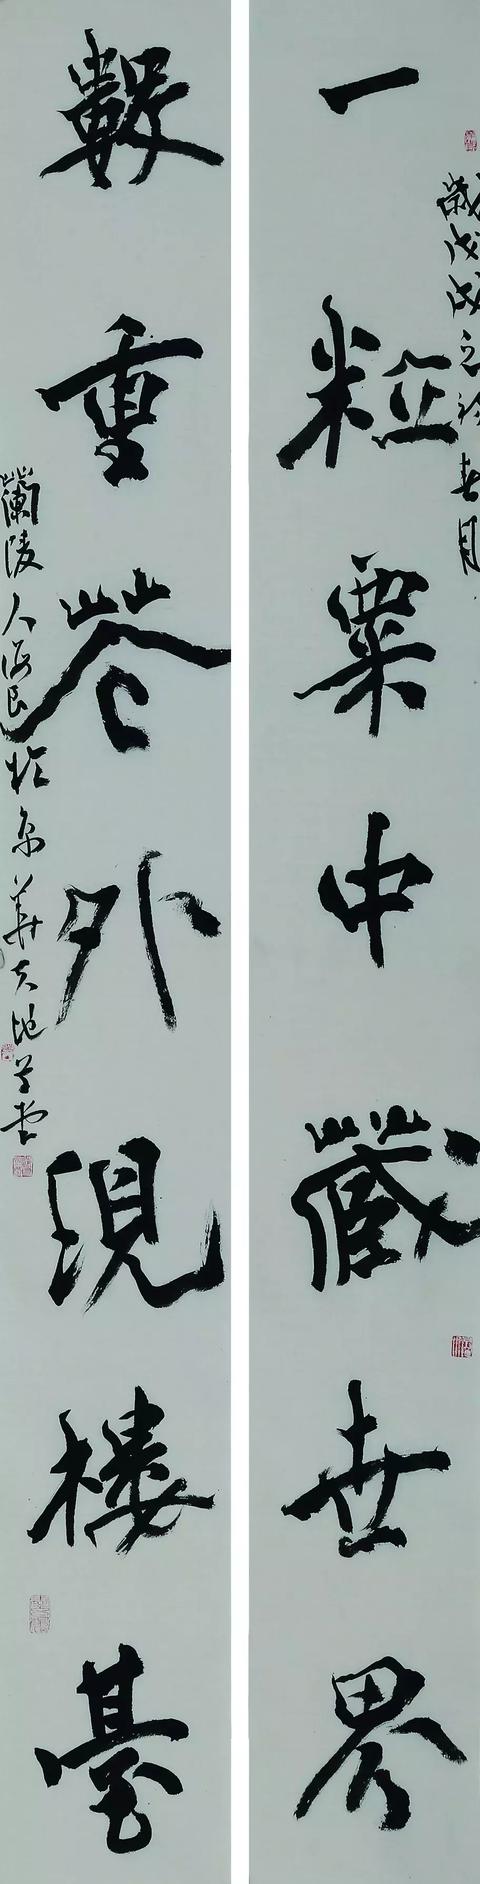 歲戊戌之初春月
一粒粟中藏世界
數重花外現樓臺
蘭陵人海良於京華天地草堂